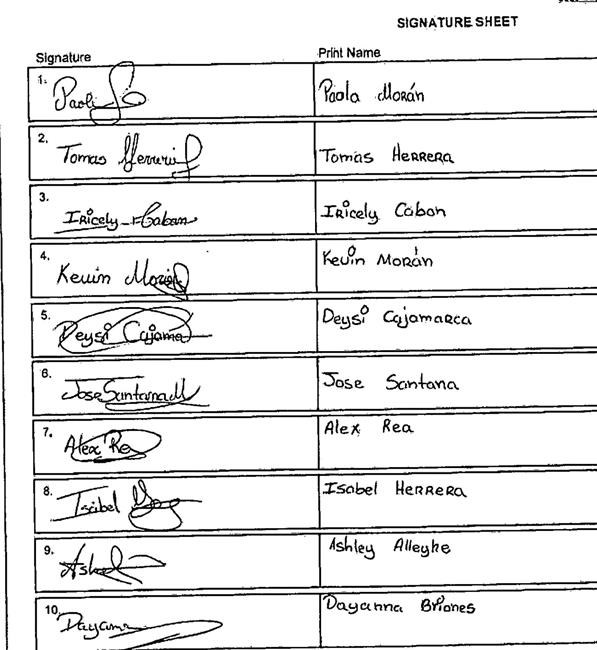 SIGNATURE SHEET
Signature Print Name
1. Paola Morán
2. Tomas Herrera Tomas HERRERA
3. IRicely Caban IRicely Cabon
4. Kevin Moran Kevin MORÁN
5. Deysi Cajama Deysi CajamaRca
6. Jose Santana M Jose Santana
7. Alex Rea Alex Rea
8. Isabel Isabel HERRERA
9. Ashley Alleyke
10. Dayanna Dayanna BRiones